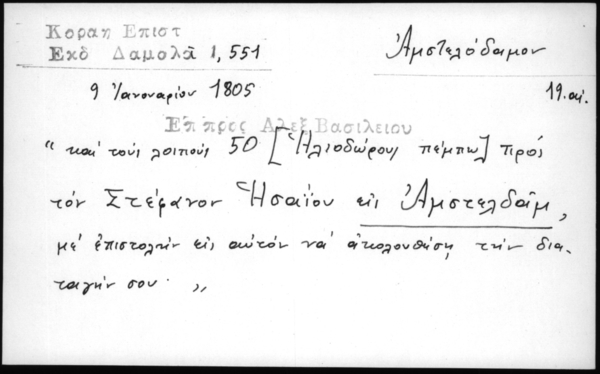 Κοραη Επιστ
Εκδ Δαμολᾶ 1,551
Ἀμστελόδαμον
9 Ἰανουαρίου 1805
19. αἰ.
Επ προς Αλεξ Βασιλειου
“ καὶ τοὺς λοιποὺς 50 [Ἡλιοδώρους πέμπω] πρὸς
τὸν Στέφανον Ἡσαΐου εἰς Ἀμστελδὰμ,
μὲ ἐπιστολὴν εἰς αὐτὸν νὰ ἀκολουθήσῃ τὴν δια-
ταγήν σου· „